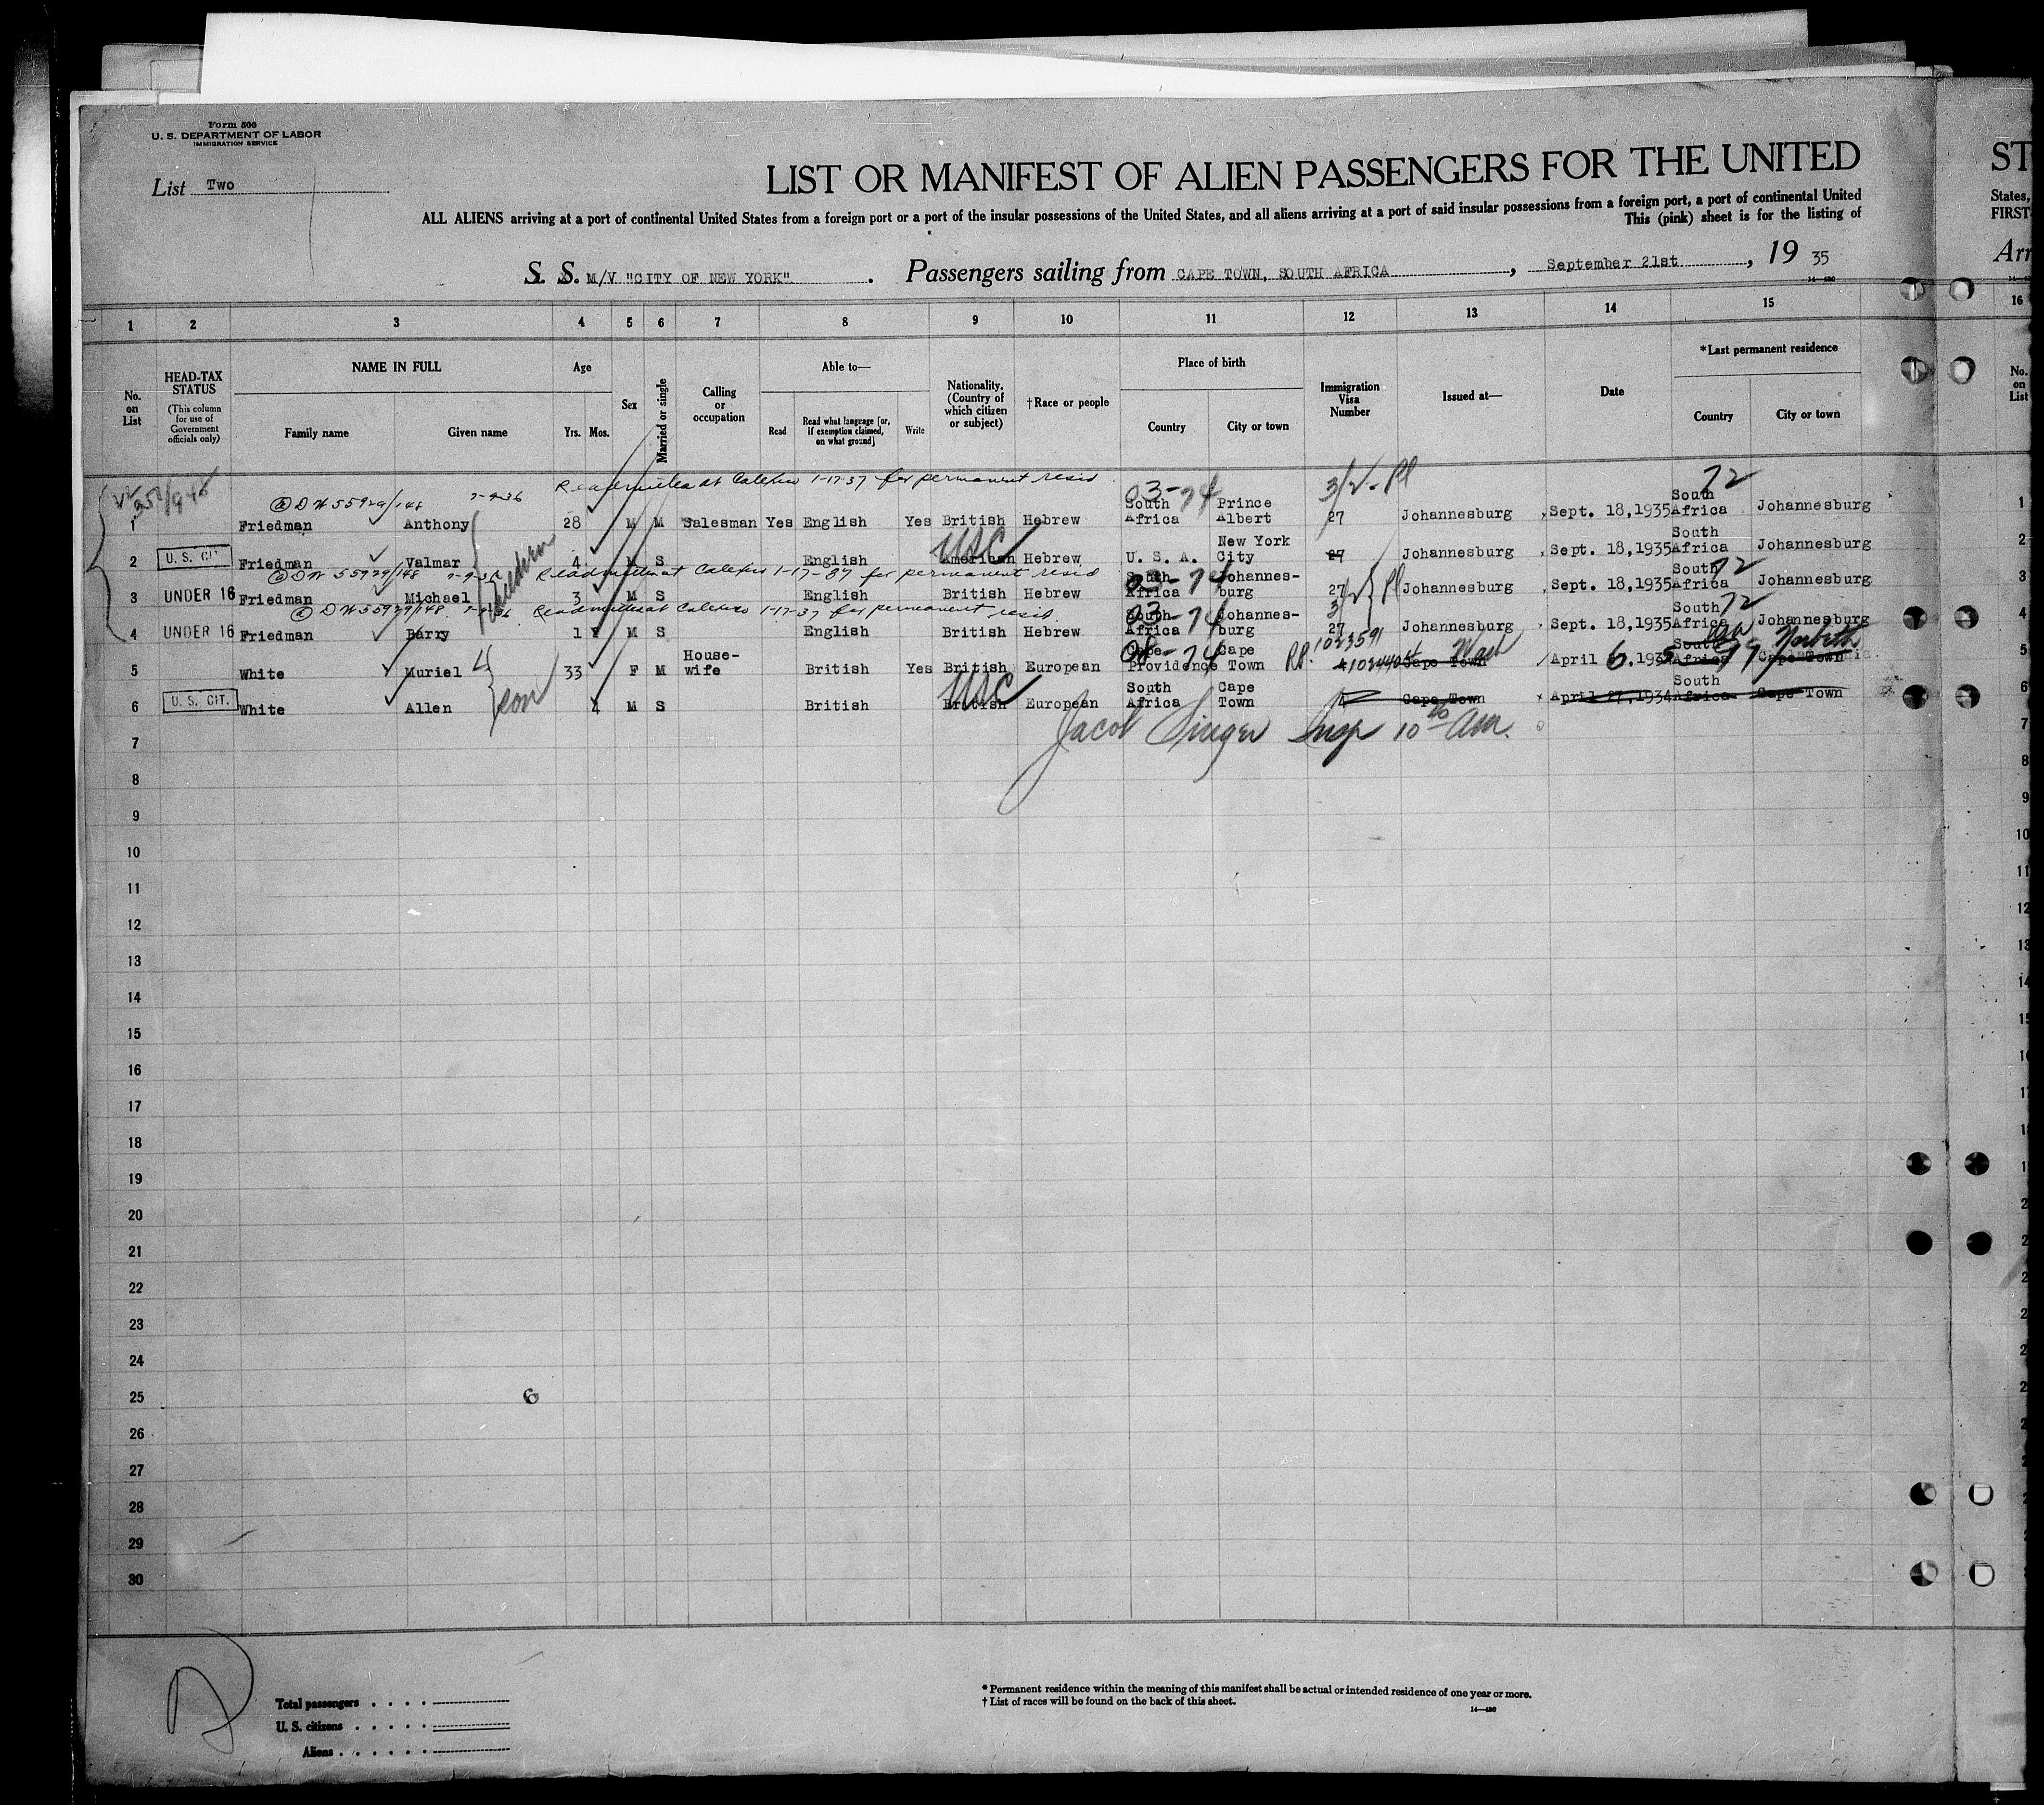 Form 500
U. S. DEPARTMENT OF LABOR
IMMIGRATION SERVICE
List Two
LIST OR MANIFEST OF ALIEN PASSENGERS FOR THE UNITED
ST
ALL ALIENS arriving at a port of continental United States from a foreign port or a port of the insular possessions of the United States, and all aliens arriving at a port of said insular possessions from a foreign port, a port of continental United
States,
This (pink) sheet is for the listing of
FIRST
S. S. M/V "CITY OF NEW YORK". Passengers sailing from CAPE TOWN, SOUTH AFRICA, September 21st, 19 35
Arr
14—430
1 2 3 4 5 6 7 8 9 10 11 12 13 14 15 16
No. on List
HEAD-TAX STATUS
(This column for use of Government officials only)
NAME IN FULL
Family name Given name
Age
Yrs. Mos.
Sex
Married or single
Calling or occupation
Able to—
Read Read what language [or, if exemption claimed, on what ground] Write
Nationality. (Country of which citizen or subject)
†Race or people
Place of birth
Country City or town
Immigration Visa Number
Issued at—
Date
*Last permanent residence
Country City or town
No. on List
DW 55929/148 2-9-36 Readmitted at Calexico 1-17-37 for permanent resid 03-74 72
1 Friedman Anthony 28 M M Salesman Yes English Yes British Hebrew South Africa Prince Albert 27 Johannesburg Sept. 18, 1935 South Africa Johannesburg 1
2 U. S. CIT. Friedman Valmar 4 M S English American USC Hebrew U. S. A. New York City 27 Johannesburg Sept. 18, 1935 South Africa Johannesburg 2
DW 55929/148 2-9-36 Readmitted at Calexico 1-17-37 for permanent resid 03-74 72
3 UNDER 16 Friedman Michael 3 M S English British Hebrew South Africa Johannesburg 27 Johannesburg Sept. 18, 1935 South Africa Johannesburg 3
DW 55929/148 2-9-36 Readmitted at Calexico 1-17-37 for permanent resid 03-74 72
4 UNDER 16 Friedman Barry 1 M S English British Hebrew South Africa Johannesburg 27 Johannesburg Sept. 18, 1935 South Africa Johannesburg 4
children
5 White Muriel 33 F M House-wife British Yes British European Cape Providence Cape Town R.P. 1023591 Cape Town Wash April 6, 193 South Africa Cape Town 5
6 U. S. CIT. White Allen son 4 M S British British USC European South Africa Cape Town 4 Cape Town April 27, 1934 South Africa Cape Town 6
Jacob Singer Insp 10 Am.
7 7
8 8
9 9
10 10
11 11
12 12
13 13
14 14
15 15
16
17
18
19
20
21
22
23
24
25 6
26
27
28
29
30
Total passengers . . . .
U. S. citizens . . . . .
Aliens . . . . . .
* Permanent residence within the meaning of this manifest shall be actual or intended residence of one year or more.
† List of races will be found on the back of this sheet.
14—430